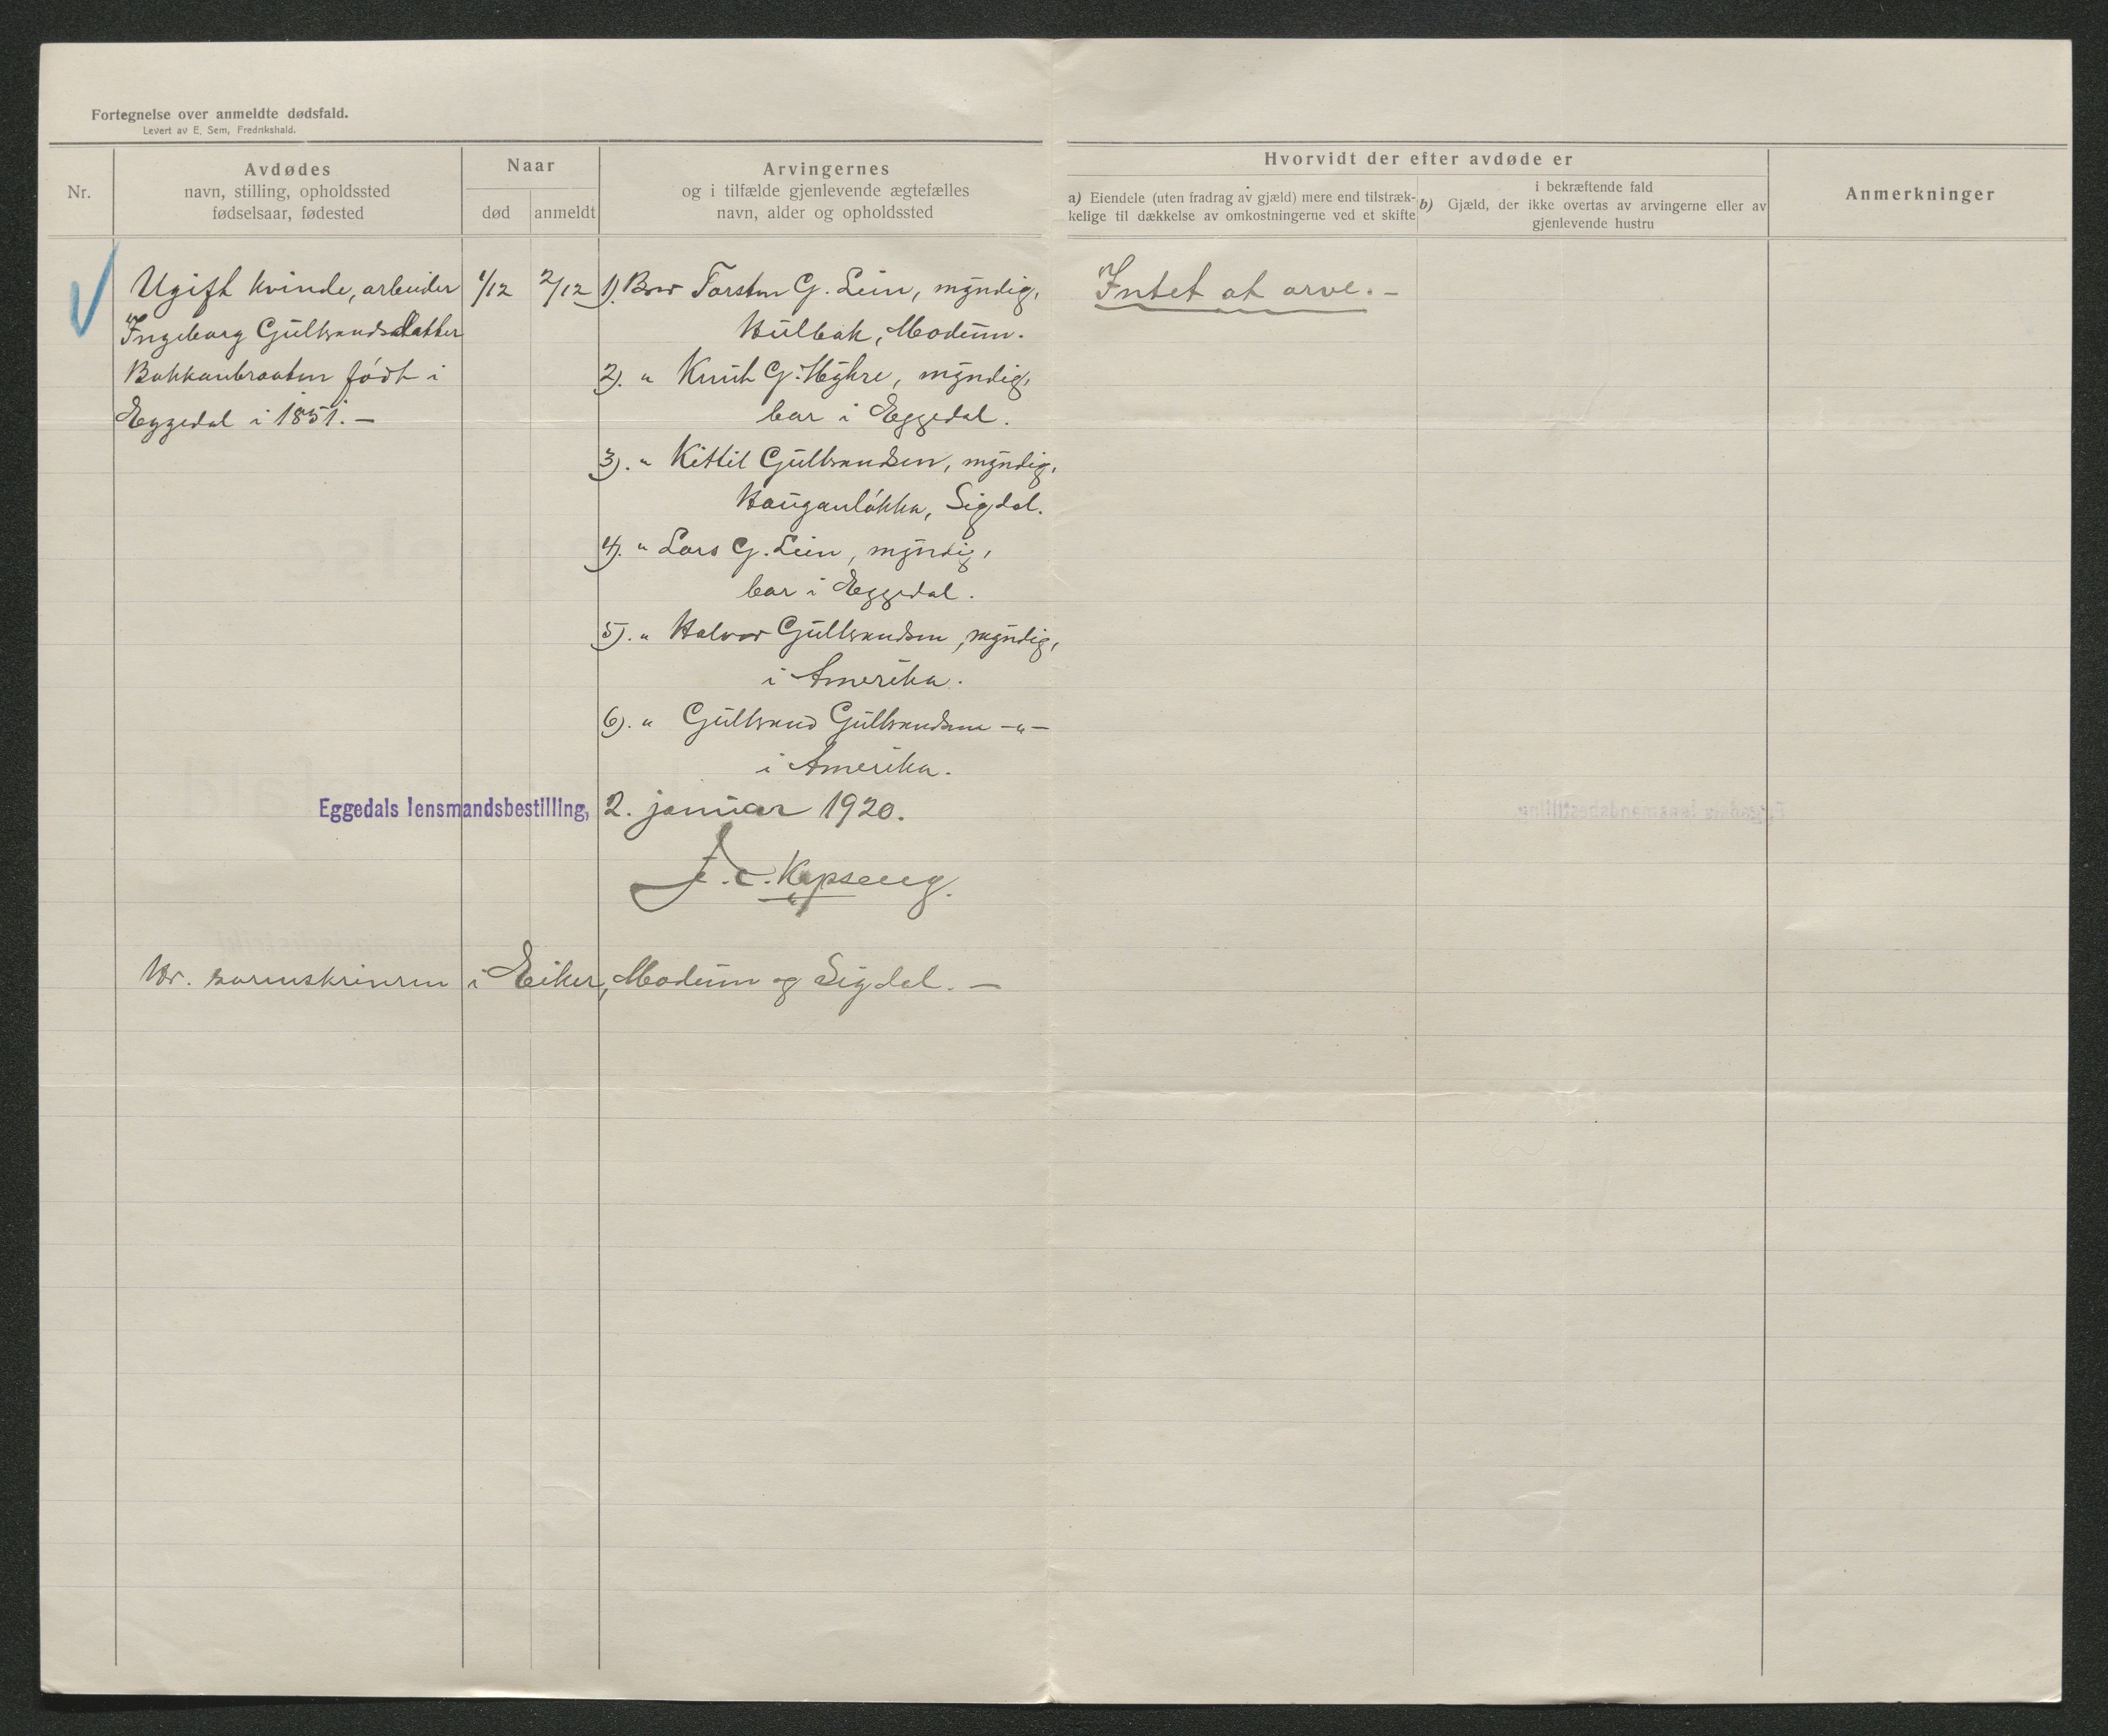 Fortegnelse over anmeldte dødsfald.
Levert av E. Sem, Fredrikshald.
Nr.
Avdødes
navn, stilling, opholdssted
fødselsaar, fødested
Naar
død
anmeldt
Arvingernes
og i tilfælde gjenlevende ægtefælles
navn, alder og opholdssted
Hvorvidt der efter avdøde er
a) Eiendele (uten fradrag av gjæld) mere end tilstræk-
kelige til dækkelse av omkostningerne ved et skifte
i bekræftende fald
b) Gjæld, der ikke overtas av arvingerne eller av
gjenlevende hustru
Anmerkninger
Ugift kvinde, arbeider
Ingeborg Gulbrandsdatter
Bakkenbraaten født i
Eggedal i 1851. —
1/12
2/12
1). Bror Torsten G. Lein, myndig,
Hulbak, Modum.
2). " Knut G. Myhre, myndig,
bor i Eggedal.
3). " Kittil Gulbrandsen, myndig,
Hauganløkka, Sigdal.
4). " Lars G. Lein, myndig,
bor i Eggedal.
5). " Halvor Gulbrandsen, myndig,
i Amerika.
6). " Gulbrand Gulbrandsen —"—
i Amerika.
Intet at arve. —
Eggedals lensmandsbestilling, 2. januar 1920.
Kopseng.
Hr. sorenskriveren i Eiker, Modum og Sigdal. —